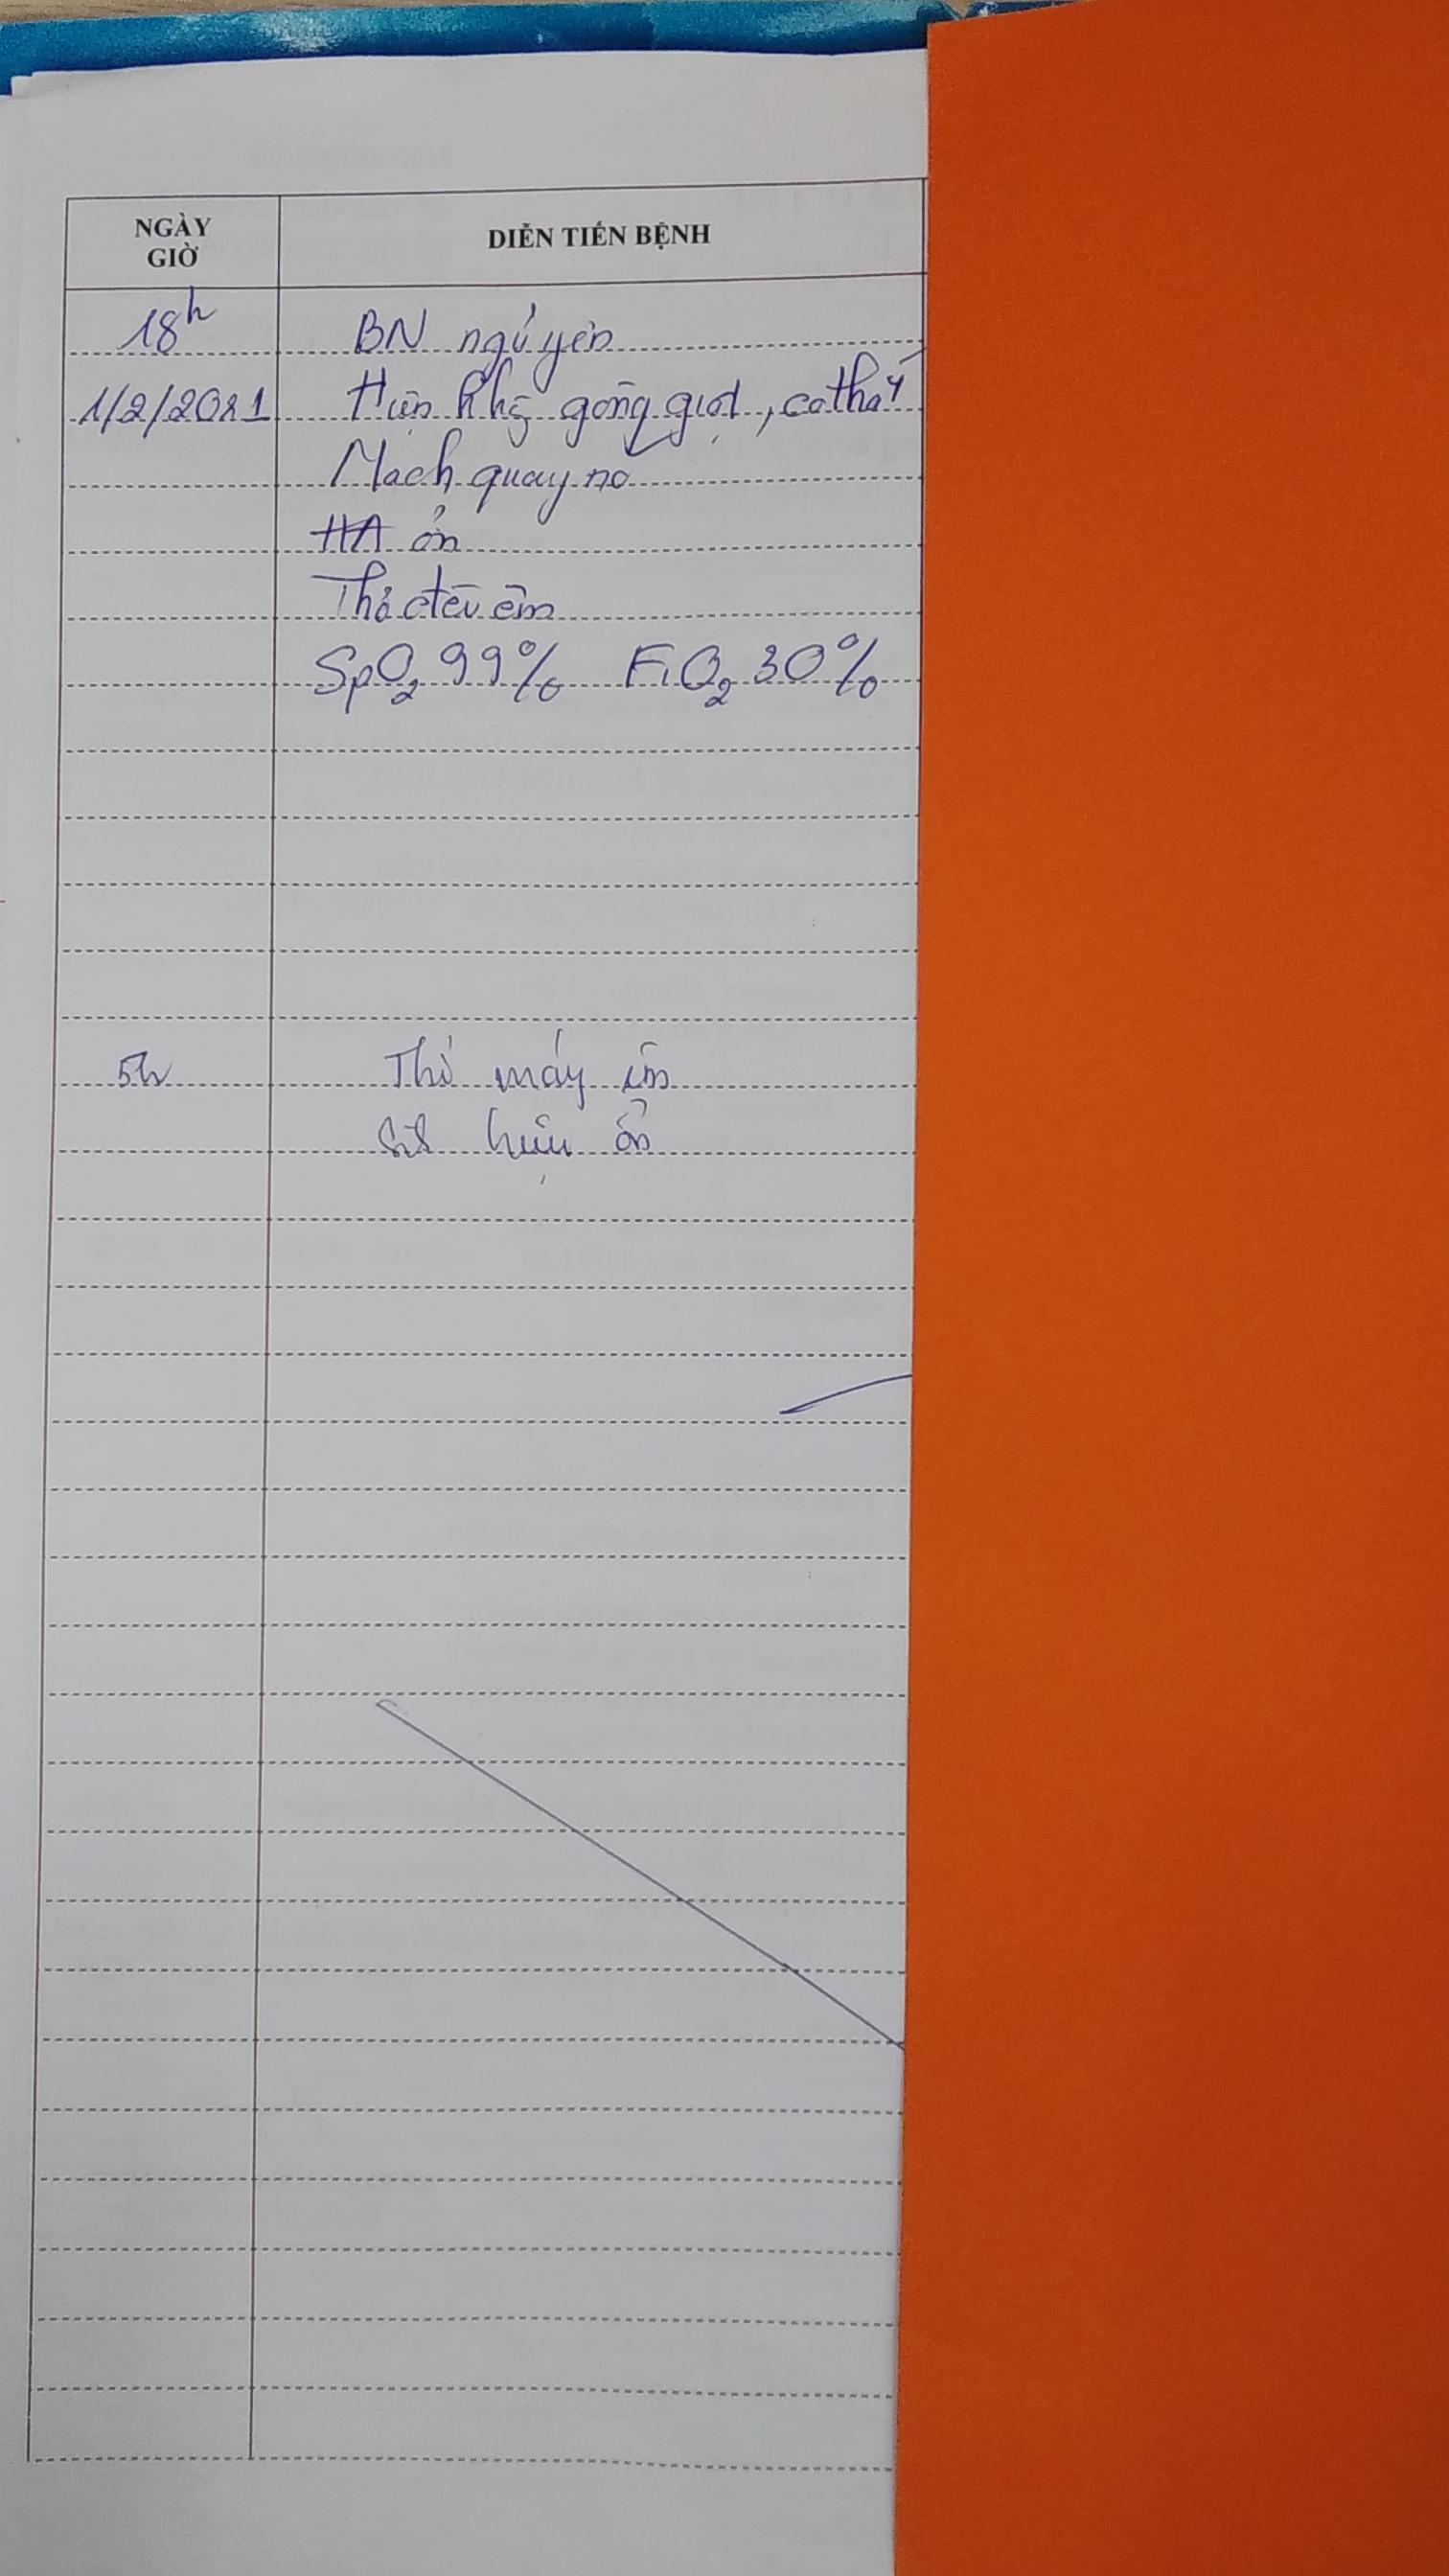 NGÀY
GIỜ
DIỄN TIẾN BỆNH
18h
BN ngủ yên
1/2/2021
Hiện khg gồng giật, co thắt
Mạch quay rõ
HA ổn
Thở đều êm
SpO2 99% FiO2 30%
5h
Thở máy êm
Sinh hiệu ổn